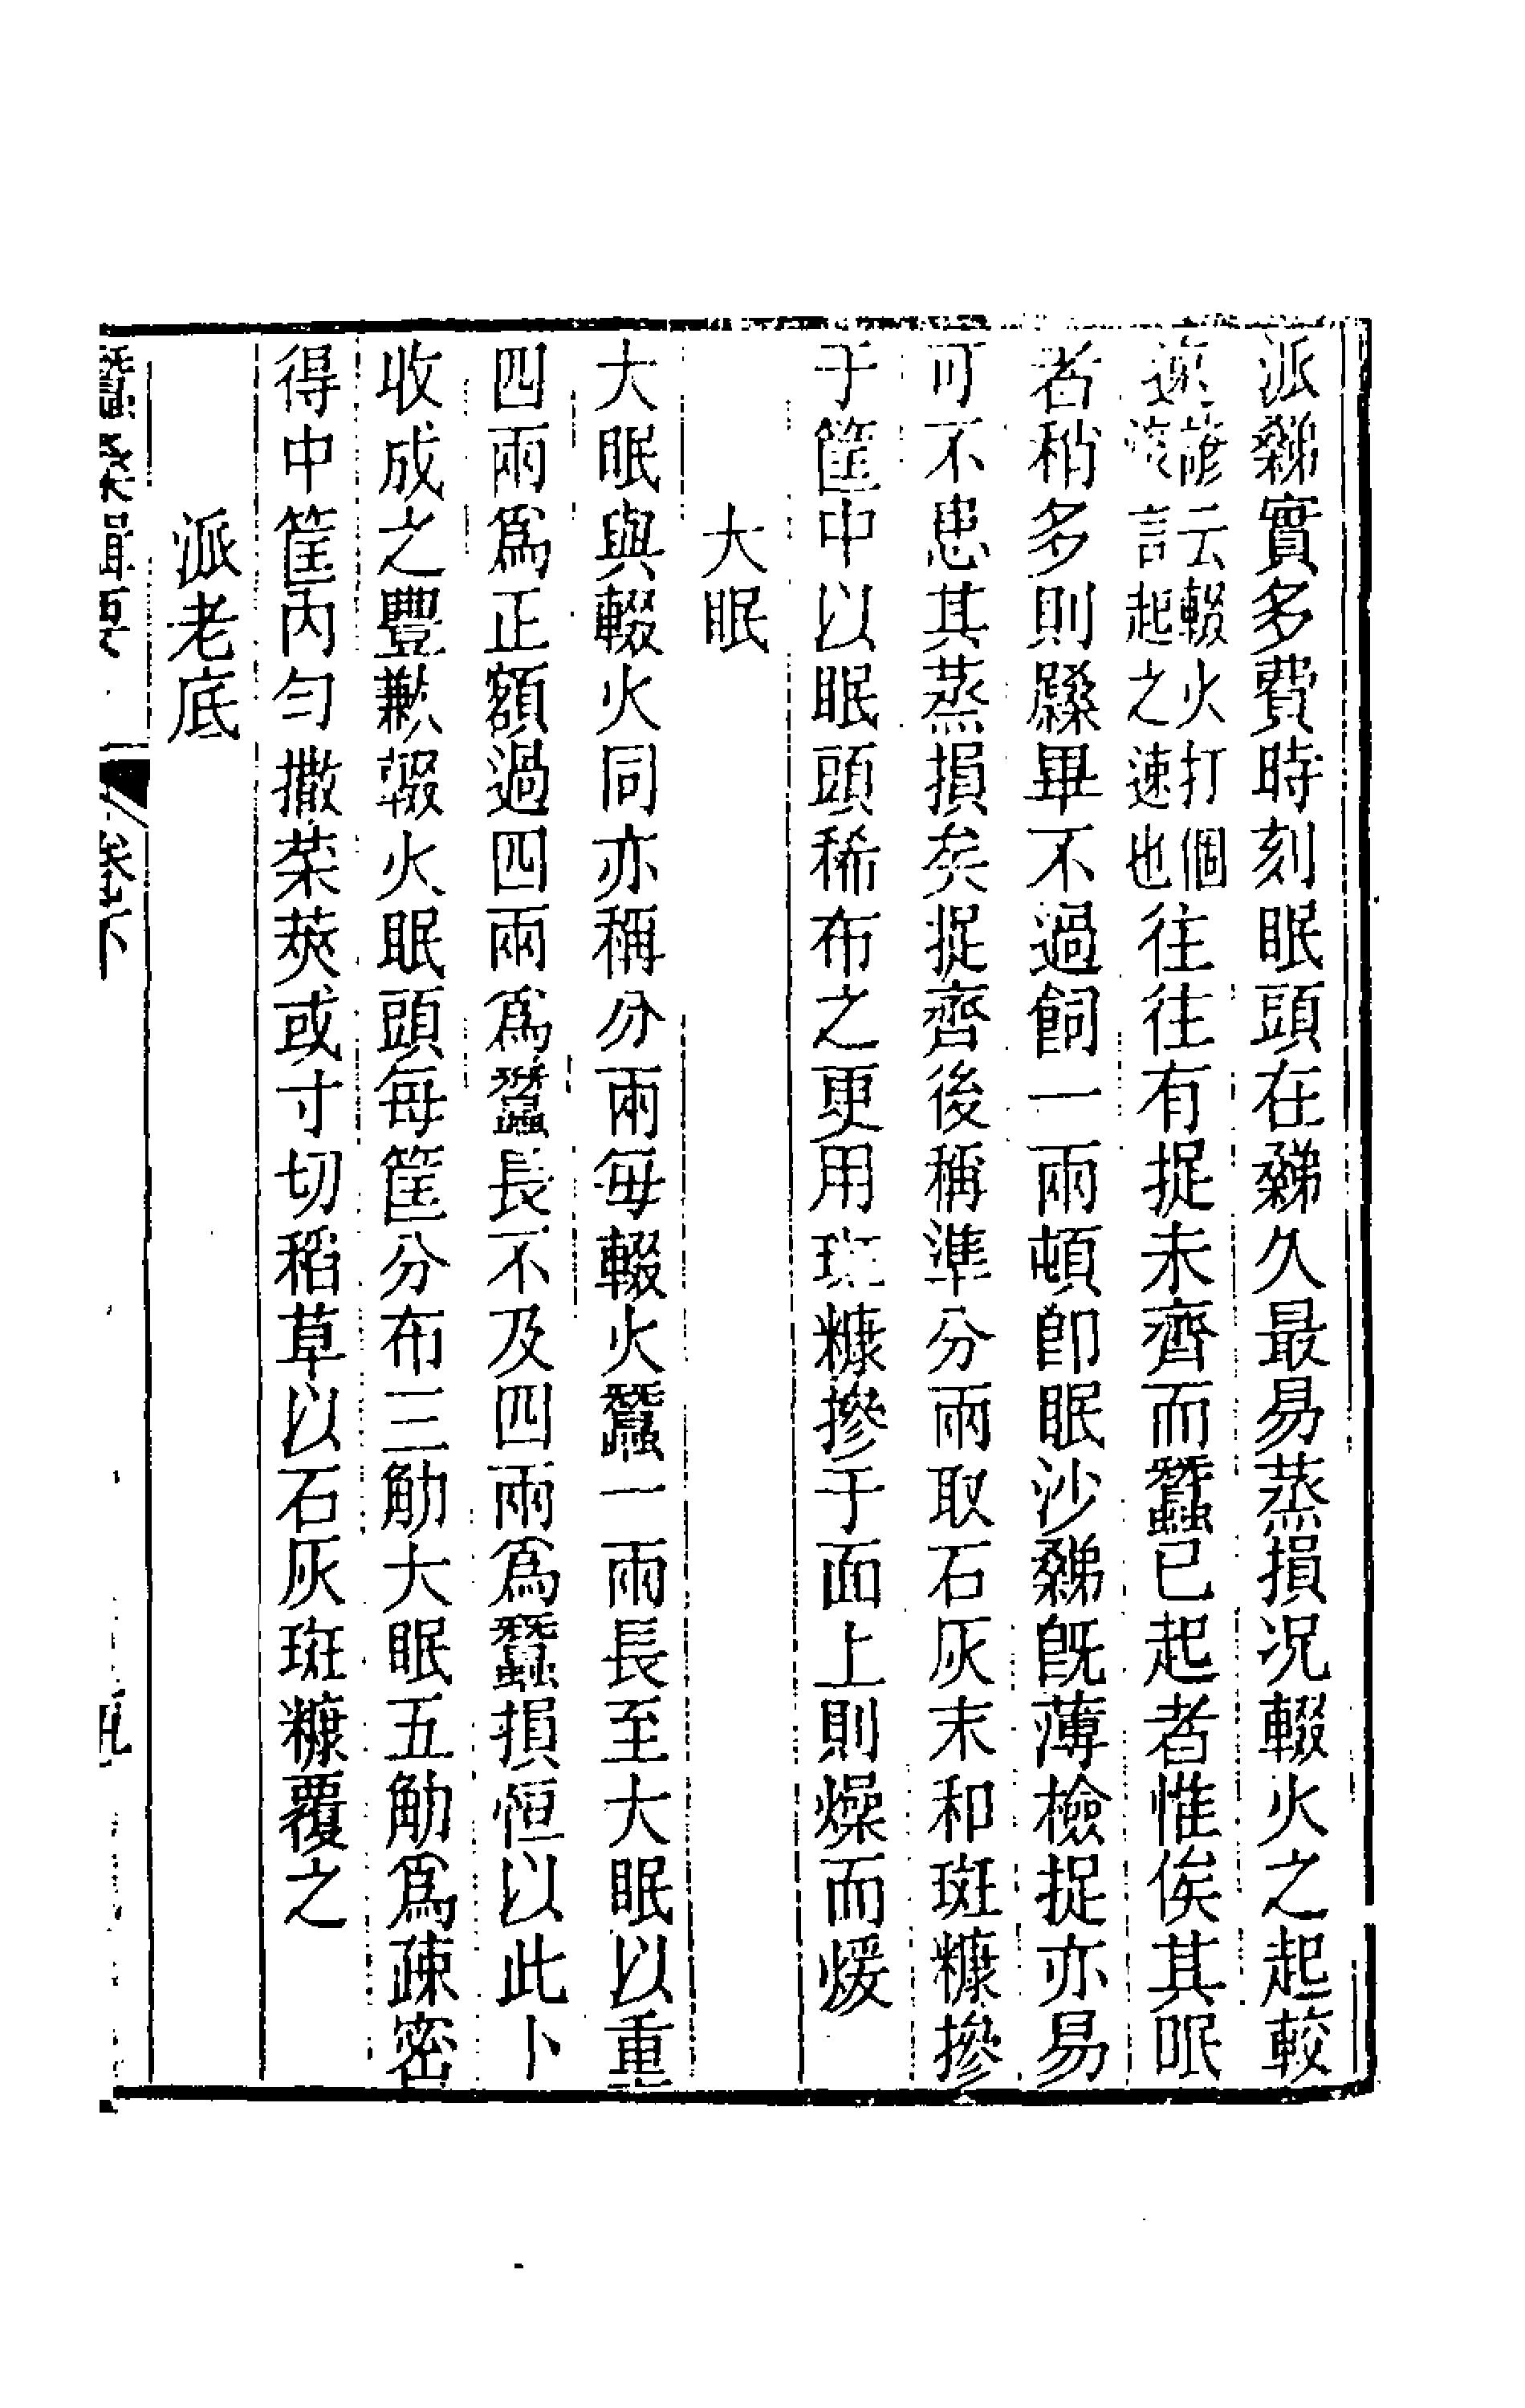 派䌫實多費時刻眠頭在䌫久最易蒸損况輟火之起較
速諺云輟火打個滾言起之速也往往有捉未齊而蠶已起者惟俟其眠
者稍多則䌫畢不過飼一兩頓卽眠沙䌫旣薄檢捉亦易
可不患其蒸損矣捉齊後稱準分兩取石灰末和斑糠摻
于筐中以眠頭稀布之更用斑糠摻于面上則燥而煖
大眠
大眠與輟火同亦稱分兩每輟火蠶一兩長至大眠以重
四兩爲正額過四兩爲蠶長不及四兩爲蠶損恒以此卜
收成之豐歉輟火眠頭每筐分布三觔大眠五觔爲疎密
得中筐內勻撒菜莢或寸切稻草以石灰斑糠覆之
派老底
蠶桑輯要 卷下